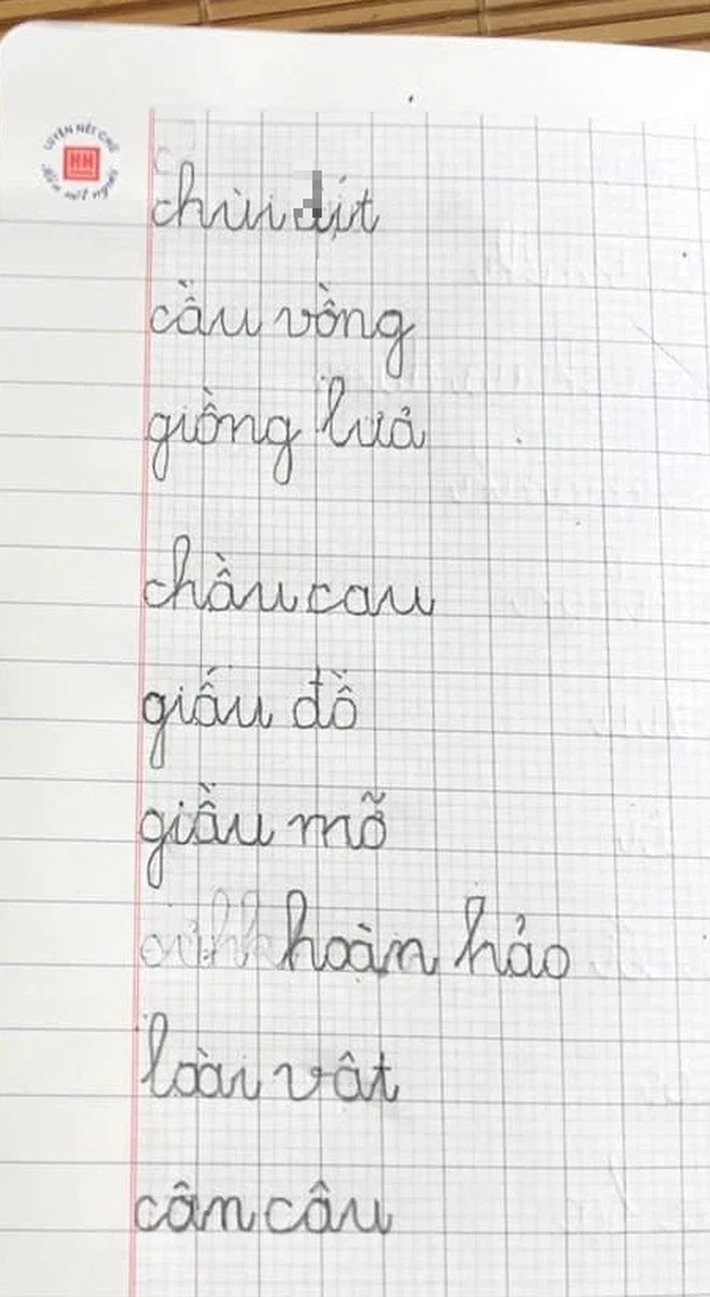 LUYỆN NÉT CHỮ
HH
Rèn nết người
chùi đít
cầu vồng
giồng lưả
chầu cau
giấu đồ
giầu mỗ
hoàn hảo
loài vât
cân câu